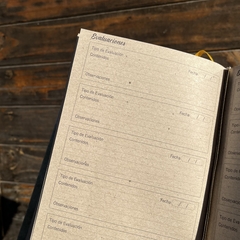 Evaluaciones
Tipo de Evaluación:
Fecha: / /
Contenidos:
Observaciones:
Tipo de Evaluación:
Fecha: / /
Contenidos:
Observaciones:
Tipo de Evaluación:
Fecha: / /
Contenidos:
Observaciones:
Tipo de Evaluación:
Fecha: / /
Contenidos:
Observaciones:
Tipo de Evaluación:
Contenidos: